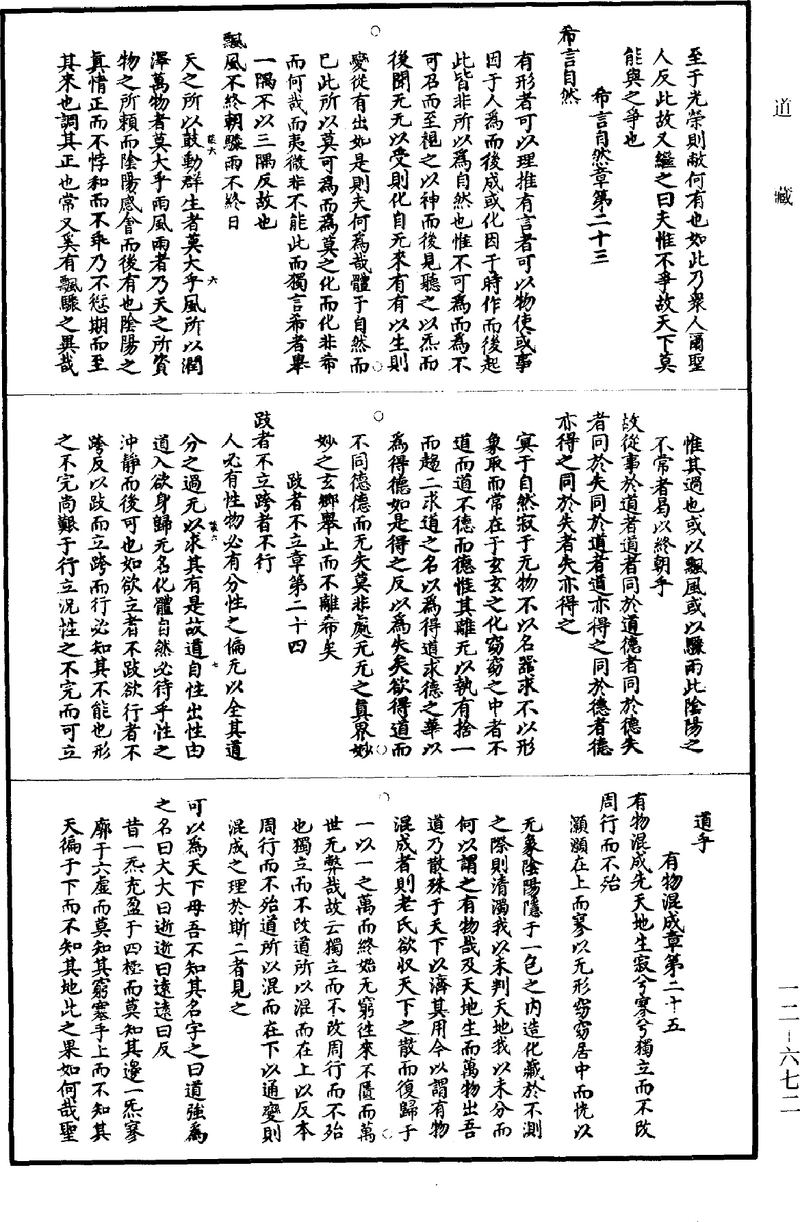 道藏
至于光榮則敝何有也如此乃衆人爾聖
人反此故又繼之曰夫惟不爭故天下莫
能與之爭也
希言自然章第二十三
希言自然
有形者可以理推有言者可以物使或事
因于人為而後成或化因于時作而後起
此皆非所以為自然也惟不可為而為不
可召而至禎之以神而後見聽之以炁而
後聞无无以受則化自无來有有以生則
變從有出如是則夫何為哉體于自然而
已此所以莫可為而為莫之化而化非希
而何哉而夷微非不能此而獨言希者舉
一隅不以三隅反故也
飄風不終朝驟雨不終日
天之所以鼓動群生者莫大乎風所以潤
澤萬物者莫大乎雨風雨者乃天之所資
物之所賴而陰陽感會而後有也陰陽之
真情正而不悖和而不乖乃不愆期而至
其來也調其正也常又奚有飄驟之異哉
惟其過也或以飄風或以驟雨此陰陽之
不常者曷以終朝乎
故從事於道者道者同於道德者同於德失
者同於失同於道者道亦得之同於德者德
亦得之同於失者失亦得之
冥于自然寂于无物不以名器求不以形
象取而常在于玄玄之化窈窈之中者不
道而道不德而德惟其離无以執有捨一
而趨二求道之名以為得道求德之華以
為得德如是得之反以為失矣欲得道而
不同德德而无失莫非處无无之真界妙
妙之玄鄉舉止而不離希矣
跂者不立章第二十四
跂者不立跨者不行
人必有性物必有分性之偏无以全其道
分之過无以求其有是故道自性出性由
道入欲身歸无名化體自然必待乎性之
沖靜而後可也如欲立者不跂欲行者不
跨反以跂而立跨而行必知其不能也形
之不完尚艱于行立況性之不完而可立
道乎
有物混成章第二十五
有物混成先天地生寂兮寥兮獨立而不改
周行而不殆
灝灝在上而寥以无形窈窈居中而恍以
无象陰陽隱于一包之内造化藏於不測
之際則清濁我以未判天地我以未分而
何以謂之有物哉及天地生而萬物出吾
道乃散殊于天下以濟其用今以謂有物
混成者則老氏欲収天下之散而復歸于
一以一之萬而終始无窮往來不匱而萬
世无弊哉故云獨立而不改周行而不殆
也獨立而不改道所以混而在上以反本
周行而不殆道所以混而在下以通變則
混成之理於斯二者見之
可以為天下母吾不知其名字之曰道強為
之名曰大大曰逝逝曰遠遠曰反
昔一炁充盈于四極而莫知其邊一炁寥
廓于六虛而莫知其窮塞乎上而不知其
天徧于下而不知其地此之果如何哉聖
一二-六七二